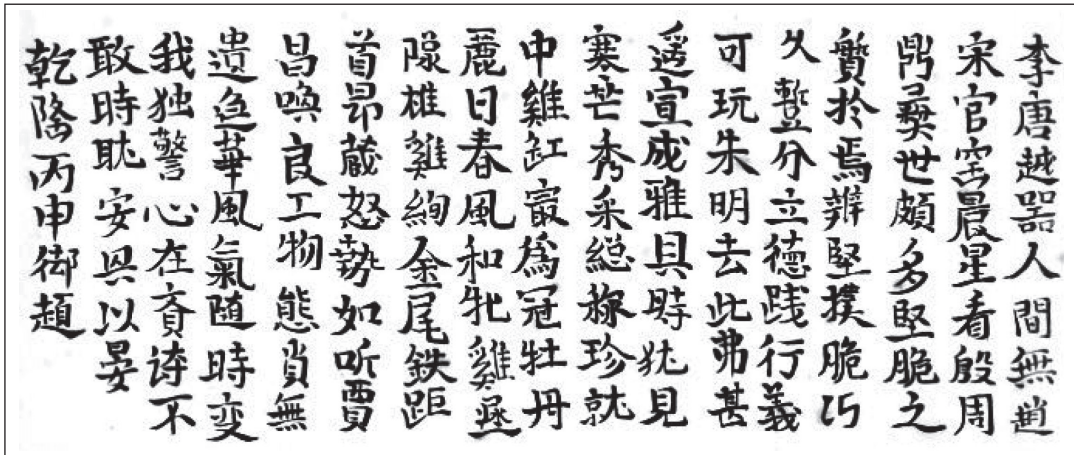 李唐越器人間無趙
宋官窑晨星看殷周
鼎彝世頗多堅脆之
質扵焉辨堅撲脆巧
久暫分立德践行義
可玩朱明去此弗甚
遥宣成雅具時犹見
寒芒秀采総稱珍就
中雞缸最為冠牡丹
麗日春風和牝雞逐
隊雄雞絢金尾鉄距
首昂蔵怒勢如听賈
昌喚良工物態肖無
遺迤華風氣随時変
我独警心在齊诗不
敢時耽安興以晏
乾隆丙申御題